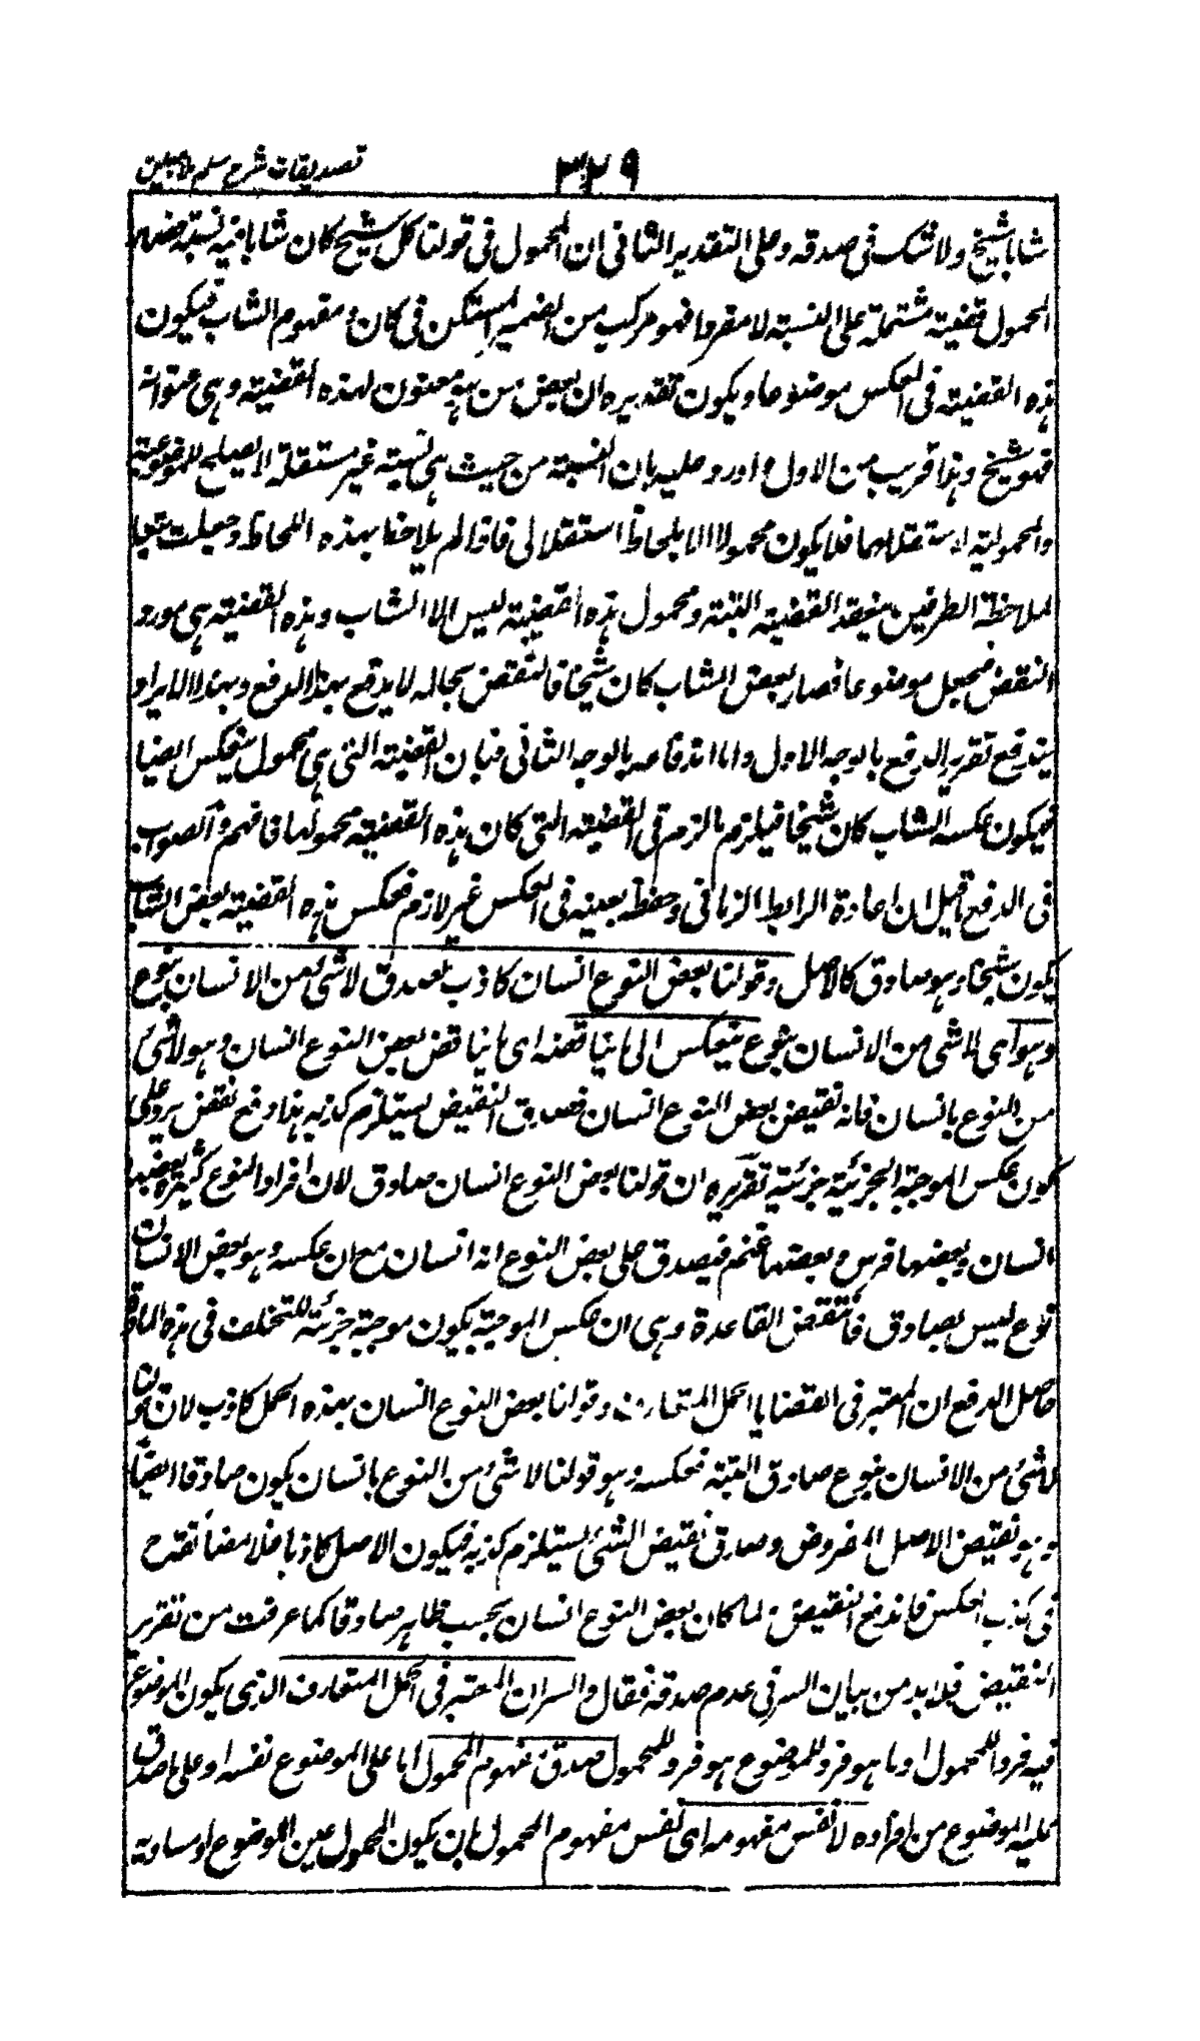 تصدیقات شرح سلم ملا مبین
۳۲۹
شابا شیخ ولاشک فی صدقه وعلی التقدیر الثانی ان المحمول فی قولنا کل شیخ کان شابا فیه نسبة فهذا
المحمول قضیته مشتملة علی النسبته لا مفردا فهو مرکب من الضمیر المستکن فی کان ومفهوم الشاب فیکون
هذه القضیته فی العکس موضوعا ویکون تقدیره ان بعض من هو معنون لهذه القضیته وهی عنوانه
فهو شیخ وهذا قریب من الاول واورد علیه بان النسبته من حیث هی نسبته غیر مستقلة لا یصلح للموضوعیة
والمحمولیة لاستقلالهما فلا یکون محمولا الا بلحاظ استقلالی فاذا لم یلاحظ بهذه اللحاظ وجعلت تبعا
لملاحظة الطرفین ینعقد القضیته البتة ومحمول هذه القضیته لیس الا الشاب وهذه القضیته هی مورد
النقض فجعل موضوعا فصار بعض الشاب کان شیخا فالنقض بحاله لا یدفع بهذا الدفع وبهذا الایراد
یندفع تقریر الدفع بالوجه الاول واما اندفاعه بالوجه الثانی فبان القضیته التی هی محمول ینعکس ایضا
فیکون عکسه الشاب کان شیخا فیلزم ما لزم فی القضیته التی کان هذه القضیته محمولها فافهم والصواب
فی الدفع ما قیل ان اعادة الرابط الزمانی وحفظه بعینه فی العکس غیر لازم فعکس هذه القضیته بعض الشاب
یکون شیخا وهو صادق کالاصل وقولنا بعض النوع انسان کاذب لصدق لاشئ من الانسان بنوع
وهو ای لاشئ من الانسان بنوع ینعکس الی ما یناقضه ای ما یناقض بعض النوع انسان وهو لاشئ
من النوع بانسان فانه نقیض بعض النوع انسان فصدق النقیض یستلزم کذبه هذا دفع نقض یرد علی
کون عکس الموجبة الجزئیة جزئیة تقریره ان قولنا بعض النوع انسان صادق لان افراد النوع کثیرة بعضها
انسان وبعضها فرس وبعضها غنم فیصدق علی بعض النوع انه انسان مع ان عکسه وهو بعض الانسان
نوع لیس بصادق فانتقض القاعدة وهی ان عکس الموجبة یکون موجبة جزئیة للتخلف فی هذه المادة
حاصل الدفع ان المعتبر فی القضایا الحمل المتعارف وقولنا بعض النوع انسان بهذه الحمل کاذب لان قولنا
لاشئ من الانسان بنوع صادق البتة فعکسه وهو قولنا لاشئ من النوع بانسان یکون صادقا ایضا
وهو نقیض الاصل المفروض وصدق نقیض الشئ یستلزم کذبه فیکون الاصل کاذبا فلا مضائقة
فی کذب العکس فاندفع النقیض ولما کان بعض النوع انسان بحسب ظاهر صادقا کما عرفت من تقریر
النقیض فلا بد من بیان السر فی عدم صدقه فقال والسر ان المعتبر فی الحمل المتعارف الذی یکون الموضوع
فیه فردا للمحمول او ما هو فرد للموضوع هو فرد للمحمول صدق مفهوم المحمول اما علی الموضوع نفسه او علی ما صدق
علیه الموضوع من افراده لا نفس مفهومه ای نفس مفهوم المحمول بان یکون المحمول عین الموضوع او مساویة